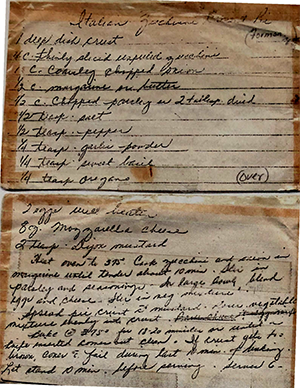 Italian Zucchini Pie
1 deep dish crust
4 c. thinly sliced unpeeled zucchini
1 c. coarsely chopped onion
1/2 c. margarine or butter
1/2 c. chopped parsley or 2 tablsp. dried
1/2 teasp. salt
1/2 teasp. pepper
1/4 teasp. garlic powder
1/4 teasp sweet basil
1/4 teasp oregano (over)
2 eggs well beaten
8 oz. Mozzarella cheese
2 teasp. Dijon mustard
Heat oven to 375 Cook zucchini and onion in
margarine until tender about 10 min. Stir in
parsley and seasonings. In large bowl blend
eggs and cheese. Stir in veg mixture.
Spread pie crust mustard vegetable
mixture evenly into crust.
Bake @ 375 for 18-20 minutes or until a
knife inserted comes out clean. If crust gets too
brown, cover foil during last 10 min. of baking
Let stand 10 min. before serving. Serves 6.